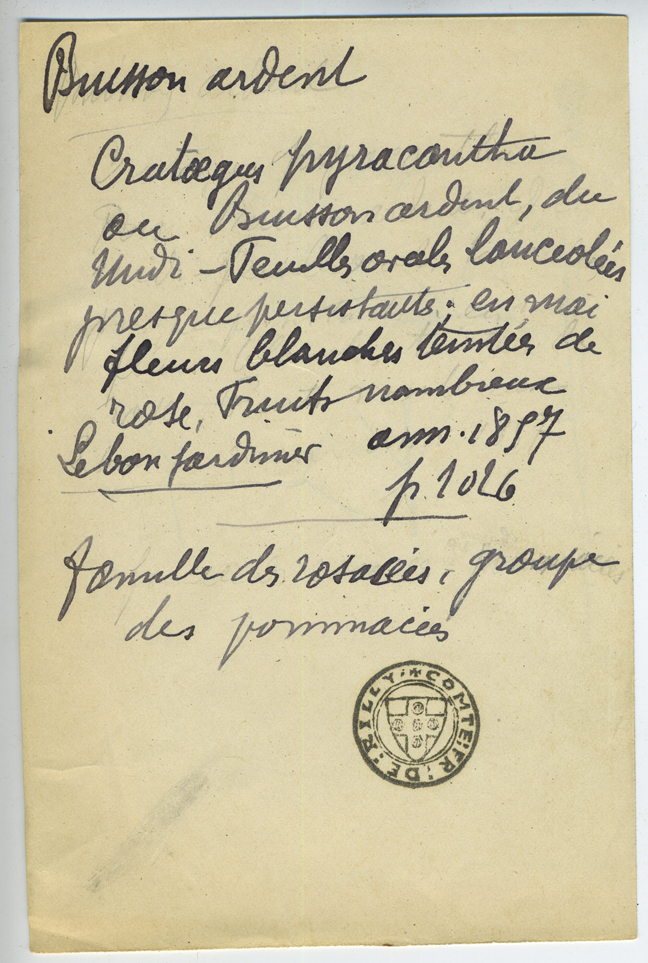 Buisson ardent
Cratægus pyracantha
ou Buisson ardent, du
Midi – Feuilles ovales lanceolées
presque persistants; en mai
fleurs blanches teintées de
rose, Fruits nombreux
Le bon jardinier ann. 1897
p. 1026
famille des rosacées, groupe
des pommacées
✠ COMTE FR: DE RILLY